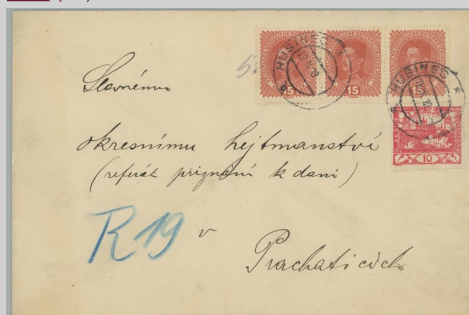 HUSINEC
15
15
15
HUSINEC
10
Slavnému
okresnímu hejtmanství
(referát přiznání k dani)
R 19
v
Prachaticích